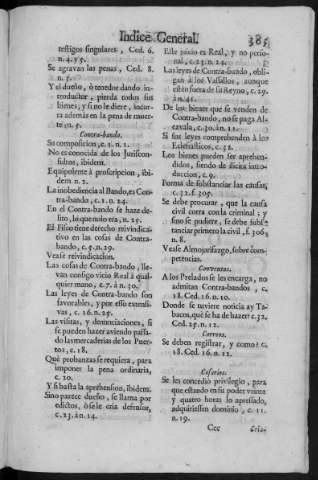 Indice General. 385
testigos singulares, Ced. 6.
n. 4. y 5.
Se agravan las penas, Ced. 8.
n. 5.
Y el dueño, ò tenedor dando in-
troductor, pierda todos sus
bienes; y si no le diere, incur-
ra además en la pena de muer-
te, n. 5.
Contra-bando.
Su composicion, c. 1. n. 1.
No es conocida de los Juriscon-
sultos, ibidem.
Equipolente à proscripcion, ibi-
dem n. 2.
La inobediencia al Bando, es Con-
tra-bando, c. 1. n. 24.
En el Contra-bando se haze de-
lito, lo que no lo era, n. 25.
El Fisco tiene derecho reivindica-
tivo en las cosas de Contra-
bando, c. 5. n. 29.
Vease reivindicacion.
Las cosas de Contra-bando, lle-
van consigo vicio Real à qual-
quier mano, c. 7. à n. 30.
Las leyes de Contra-bando son
favorables, y por esse extensi-
vas, c. 16. n. 25.
Las visitas, y denunciaciones, si
se pueden hazer aviendo passa-
do las mercaderias de los Puer-
tos, c. 18.
Què probanzas se requiera, para
imponer la pena ordinaria,
c. 20.
Y si basta la aprehension, ibidem.
Sino parece dueño, se llama por
edictos, ò se le cria defensor,
c. 23. à n. 14.
Este juicio es Real, y no perso-
nal, c. 23. n. 21.
Las leyes de Contra-bando, obli-
gan à los Vassallos, aunque
estèn fuera de su Reyno, c. 29.
à n. 41.
De los bienes que se venden de
Contra-bando, no se paga Al-
cavala, c. 30. à n. 11.
Si sus leyes comprehenden à los
Eclesiasticos, c. 32.
Los bienes pueden ser aprehen-
didos, siendo de ilicita intro-
duccion, c. 9.
Forma de substanciar las causas,
c. 32. f. 305.
Se debe procurar, que la causa
civil corra con la criminal; y
sino se pudiere, se debe subs-
tanciar primero la civil, f. 306.
n. 8.
Vease Almojarifazgo, sobre com-
petencias.
Conventos.
A los Prelados se les encarga, no
admitan Contra-bandos, c.
18. Ced. 16. n. 10.
Donde se tuviere noticia ay Ta-
bacos, què se ha de hazer? c. 32.
Ced. 25. n. 12.
Correos.
Se deben registrar, y como? c.
18. Ced. 16. n. 12.
Cosarios.
Se les concediò privilegio, para
que estando en su poder veinte
y quatro horas lo apresado,
adquiriessen dominio, c. 11.
n. 19.
Ccc Cria-